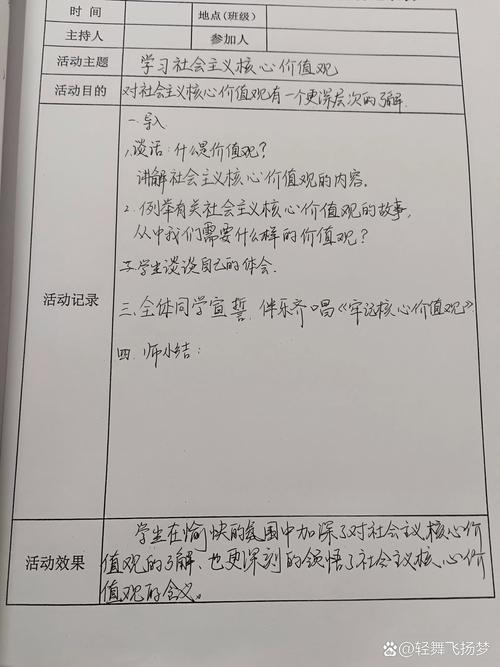 时间 地点(班级)
主持人 参加人
活动主题 学习社会主义核心价值观
活动目的 对社会主义核心价值观有一个更深层次的了解
活动记录
一.导入
1.谈话:什么是价值观?
讲解社会主义核心价值观的内容.
2.例举有关社会主义核心价值观的故事,
从中我们需要什么样的价值观?
二.学生谈谈自己的体会.
三.全体同学宣誓.伴乐齐唱《牢记核心价值观》
四.师小结:
活动效果
学生在愉快的氛围中加深了对社会主义核心价
值观的了解、也更深刻的领悟了社会主义核心价
值观的含义。
@轻舞飞扬梦